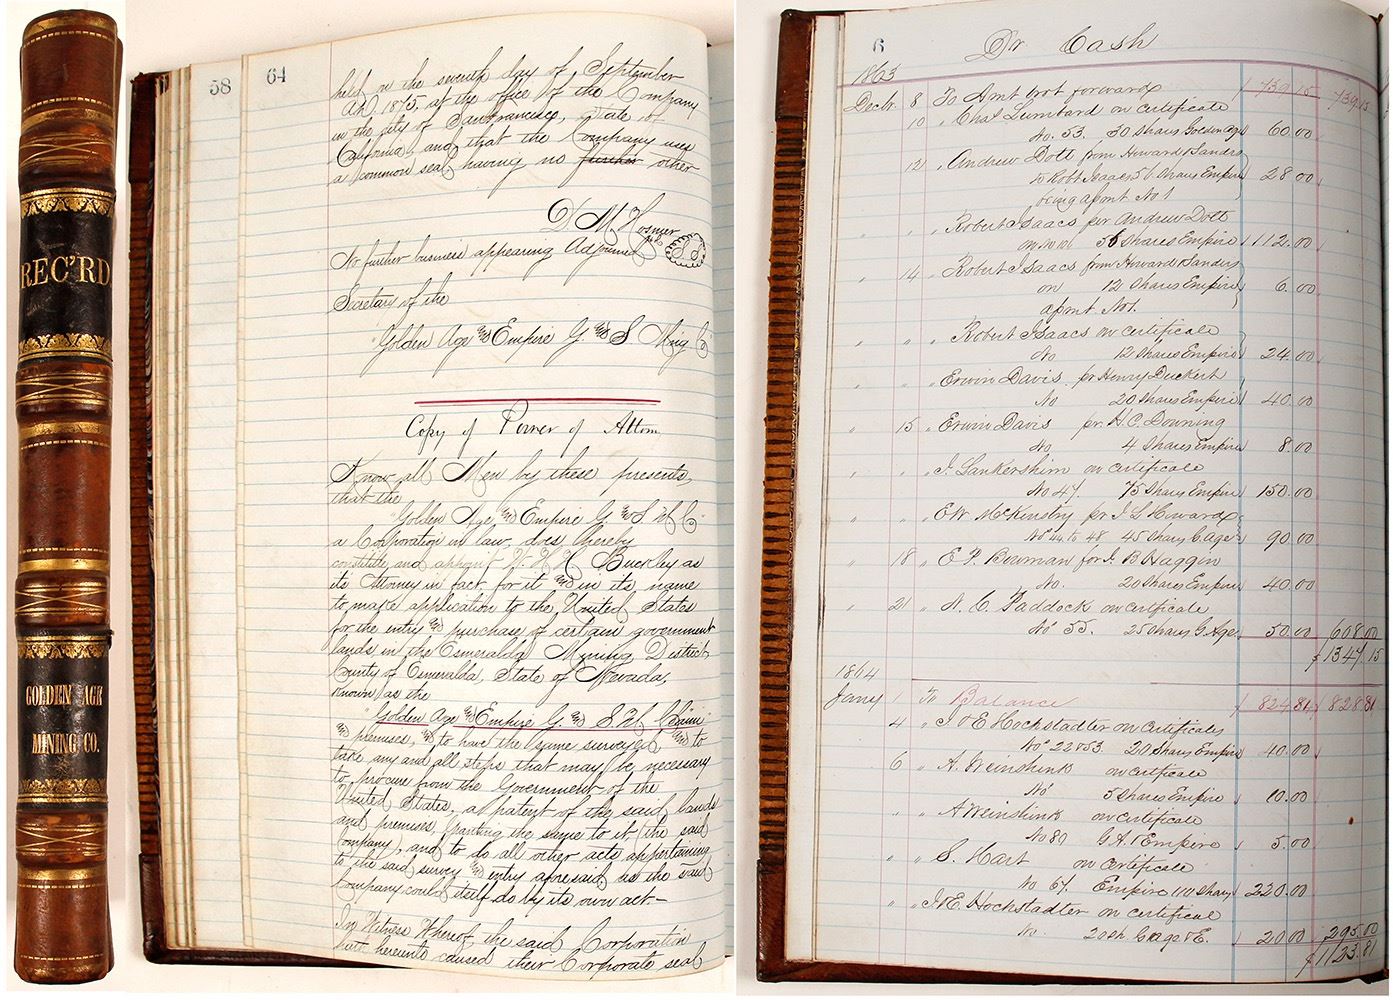 REC'RD
GOLDEN AGE
MINING CO.
58
64
held on the seventh day of September
AD, 1875, at the office of the Company
in the City of San Francisco, State of
California, and that the Company uses
a common seal having no further other
D M Hosmer
No further business appearing Adjourned
Secretary of the
"Golden Age and Empire G. and S Mng Co
Copy of Power of Attorn
Know all Men by these presents,
that the
"Golden Age and Empire G. and S. M Co"
a Corporation in law, does hereby
constitute and appoint W. H. H. Buckley as
its Attorney in fact for it and in its name
to make application to the United States
for the entry and purchase of certain government
lands in the Esmeralda Mining District
County of Esmeralda, State of Nevada,
known as the
"Golden Age and Empire G. and S. M Claim
and premises, and to have the same surveyed and to
take any and all steps that may be necessary
to procure from the Government of the
United States, a patent of the said lands
and premises, granting the same to it the said
Company, and to do all other acts appertaining
to the said survey and entry aforesaid as the said
Company could itself do by its own act.-
In Witness Whereof, the said Corporation
hath hereunto caused their Corporate seal
6
Dr Cash
1863
Decbr 8 To Amt brot forward 739.15 739.15
10 " Chas Lumbard on Certificate
No. 53. 30 Shares Golden Age 60.00
12 " Andrew Dott from Howard & Sanders
to Robt Isaacs 56 Shares Empire 28.00
being apmt No 1
" " " Robert Isaacs per Andrew Dott
56 Shares Empire 112.00
" 14 " Robert Isaacs from Howard & Sanders
on 12 Shares Empire 6.00
apmt No 1.
" " " Robert Isaacs on Certificate
No 12 Shares Empire 24.00
" " " Erwin Davis pr Henry Duckert
No 20 Shares Empire 40.00
" 15 " Erwin Davis pr. H. C. Downing
No, 4 Shares Empire 8.00
" " " I. Lankershim on Certificate
No 47. 75 Shares Empire 150.00
" " " E W McKinstry pr J. L Howard
No 44 to 48 45 Shares G. Age 90.00
" 18 " E. P. Bowman for J. B Haggin
No. 20 Shares Empire 40.00
" 21 " A. C. Paddock on Certificate
No 55. 25 Shares G. Age 50.00 608.00
$1347.15
1864
Jany 1 To Balance 824.81 828.81
4 " J & E Hochstadter on Certificates
No 22 & 53 20 Shares Empire 40.00
6 " A. Weinshink on Certificate
No 5 Shares Empire 10.00
" " A Weinshink on Certificate
No 80 G. A. & Empire 5.00
" " " S. Hart on Certificate
No 67. Empire 110 Shares 220.00
" " J & E. Hochstadter on Certificate
No. 20 sh. G. Age & E. 20.00 295.00
$1123.81